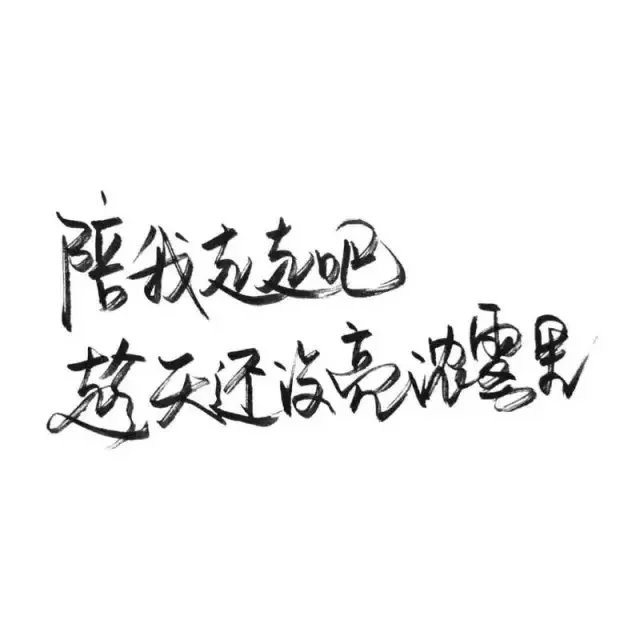 陪我走走吧
趁天还没亮浓雲